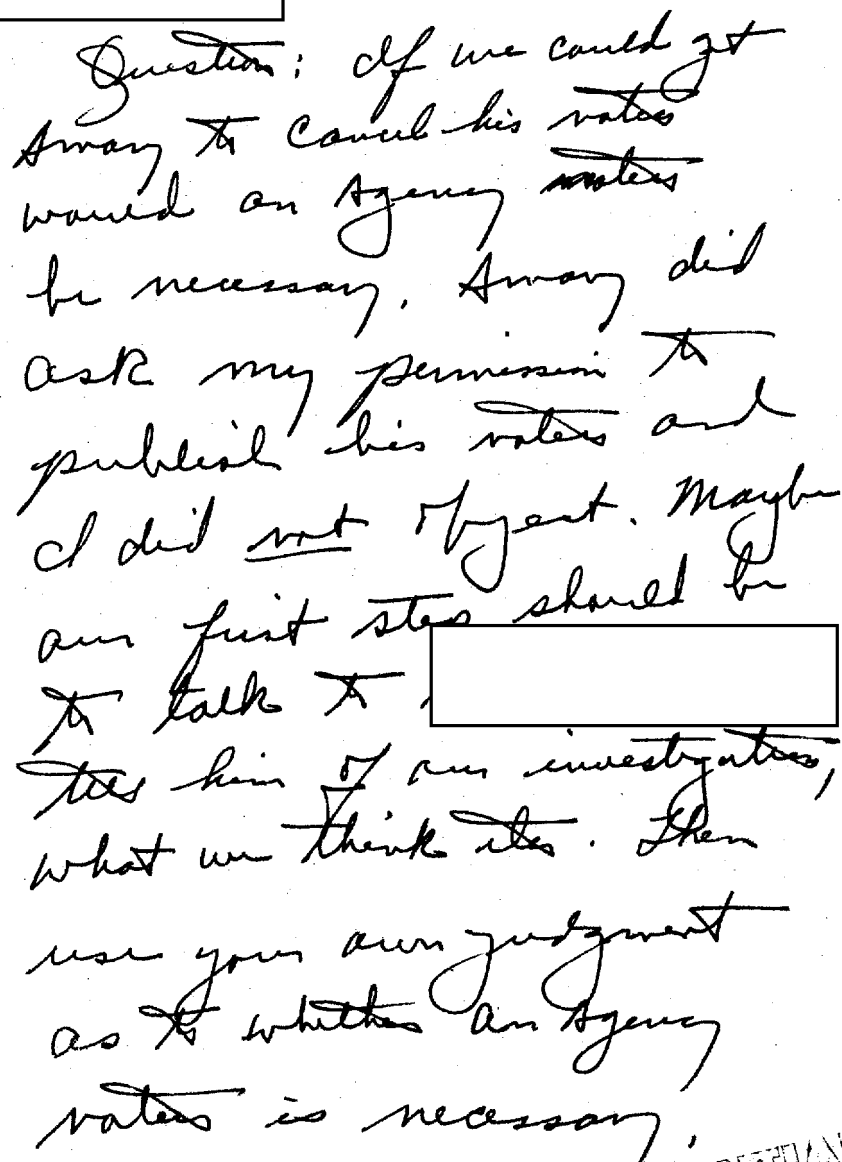 Question: If we could get
Amory to cancel his notice
would an Agency notice
be necessary. Amory did
ask my permission to
publish his notice and
I did not object. Maybe
our first step should be
to talk to
tell him of our investigation,
what we think etc. Then
use your own judgment
as to whether an Agency
notice is necessary.